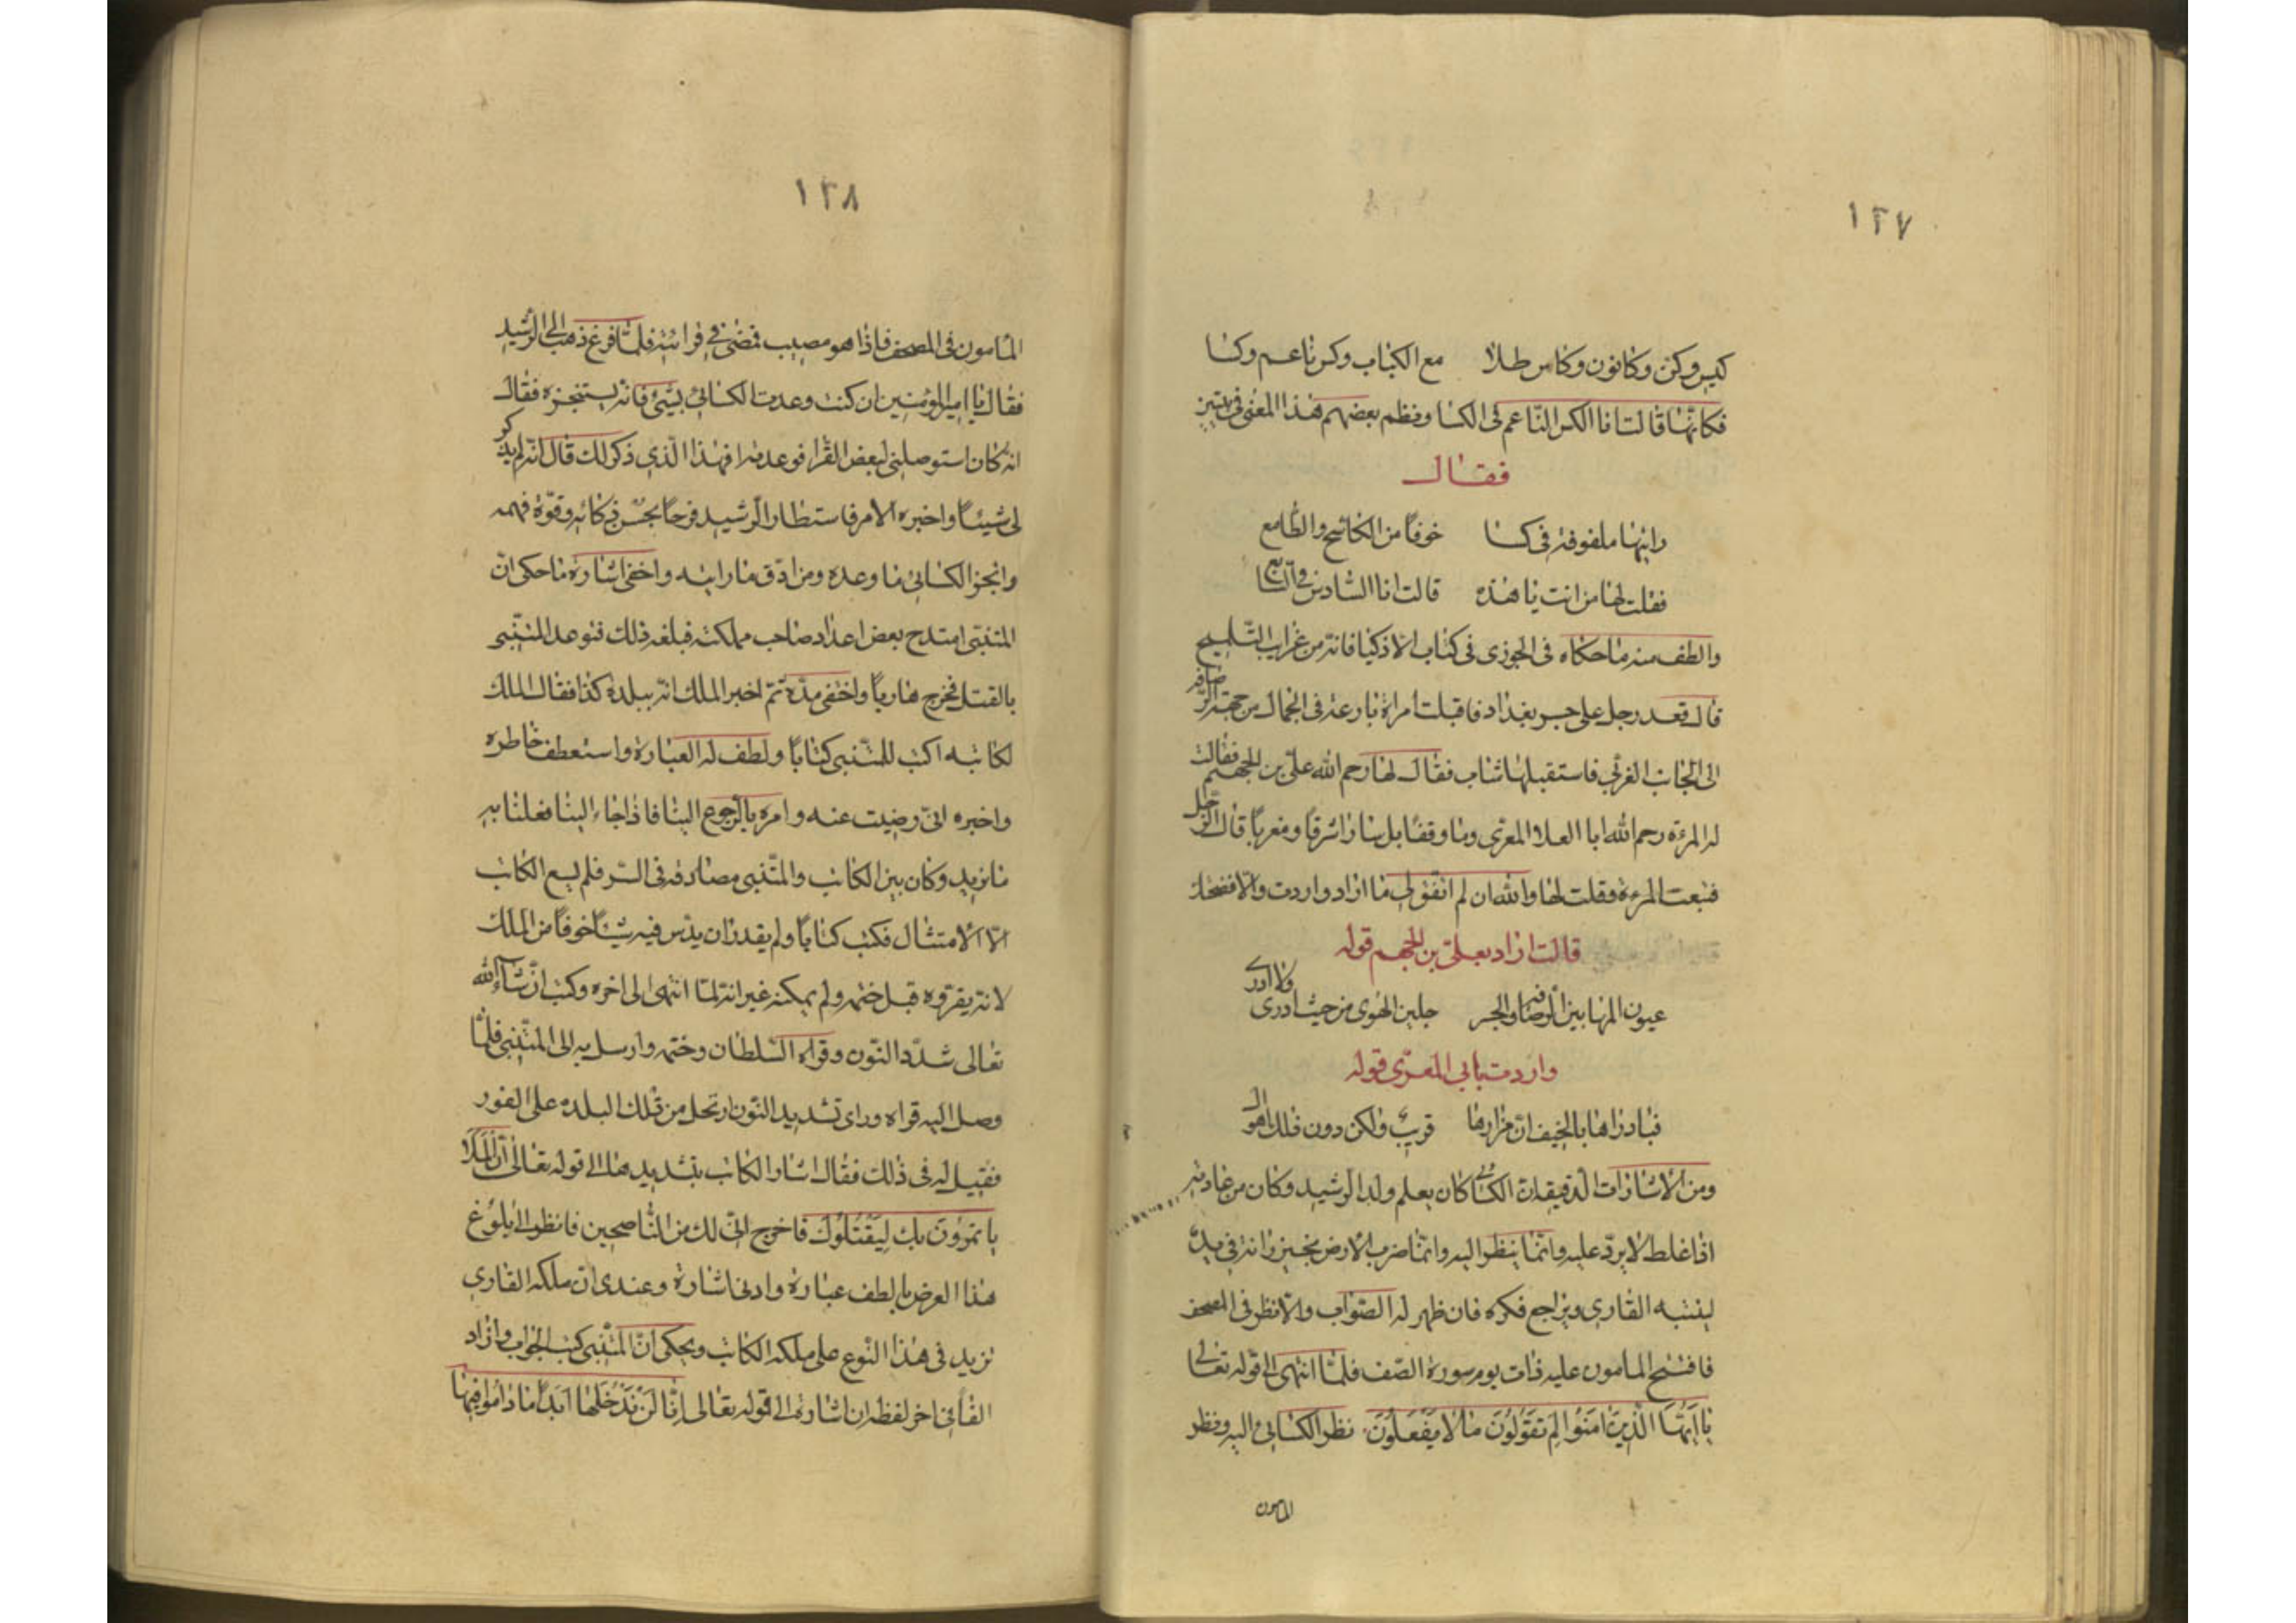 ١٢٧
كيس وكن وكانون وكاس طلا مع الكباب وكس ناعم وكسا
فكانها قالت انا الكس الناعم فى الكسا ونظم بعضهم هذا المعنى فى بيتين
فقال
رايتها ملفوفة فى كسا خوفًا من الكاشح والطامع
فقلت لها من انت يا هذه قالت انا السادس فى السابع
والطف منه ما حكاه فى الجوزى فى كتاب الاذكيا فانه من غراب التلميح
قال قعد رجل على جسر بغداد فاقبلت امراة بارعة فى الجمال من جهة الرصافة
الى الجانب الغربى فاستقبلها شاب فقال لها رحم الله على بن الجهم فقالت
له المرءة رحم الله ابا العلا المعرى وما وقفا بل سارا شرقا ومغربا قال الرجل
فتبعت المرءة وقلت لها والله ان لم اتقولى ما اراد واردت والا فضحتك
قالت اراد بعلى بن الجهم قوله
عيون المها بين الرصافة والجسر جلبن الهوى من حيث ادرى ولا ادرى
واردت بابى المعرى قوله
فيا دارها بالخيف ان مزارها قريب ولكن دون ذلك اهوال
ومن الاشارات الدقيقة ان الكسائى كان يعلم ولد الرشيد وكان من عادته
اذا غلط لا يرد عليه وانما ينظر اليه وانما ضرب الارض بخيزرانة فى يده
لينتبه القارى ويراجع فكره فان ظهر له الصواب والا نظر فى المصحف
فافتتح المامون عليه ذات يوم سورة الصف فلما انتهى الى قوله تعالى
يا ايها الذين امنوا لم تقولون ما لا يفعلون نظر الكسائى اليه ونظر
المامون
١٢٨
المامون فى المصحف فاذا هو مصيب فمضى فى قرائته فلما فرغ ذهب الى الرشيد
فقال يا امير المومنين ان كنت وعدت الكسائى بشئ فانه يستنجزه فقال
انه كان استوصلنى لبعض القرا فوعدته افهذا الذى ذكر لك قال انه لم يذكر
لى شيئًا واخبره الامر فاستطار الرشيد فرحًا بحسن ذكائه وقوة فهمه
وانجز الكسائى ما وعده ومن ادق ما رايته واخفى اشارة ما حكى ان
المتنبى امتدح بعض اعداء صاحب مملكته فبلغه ذلك فتوعد المتنبى
بالقتل فخرج هاربًا واختفى مدة ثم اخبر الملك انه ببلدة كذا فقال الملك
لكاتبه اكتب للمتنبى كتابًا ولطف له العبارة واستعطف خاطره
واخبره انى رضيت عنه وامره بالرجوع الينا فاذا جاء الينا فعلنا به
ما نريد وكان بين الكاتب والمتنبى مصادقة فى السر فلم يسع الكاتب
الا الامتثال فكتب كتابًا ولم يقدر ان يدس فيه شيئًا خوفًا من الملك
لانه يقروه قبل ختمه ولم يمكنه غير انه لما انتهى الى اخره وكتب ان شاء الله
تعالى شدد النون وقراه السلطان وختمه وارسل به الى المتنبى فلما
وصل اليه قراه وراى تشديد النون ارتحل من تلك البلدة على الفور
فقيل له فى ذلك فقال اشار الكاتب بتشديد هذا الى قوله تعالى ان الملا
ياتمرون بك ليقتلوك فاخرج انى لك من الناصحين فانظر الى بلوغ
هذا الغرض بالطف عبارة وادنى اشارة وعندى ان ملكة القارى
تزيد فى هذا النوع على ملكة الكاتب ويحكى ان المتنبى كتب الجواب وازاد
الفًا فى اخر لفظة ان اشارة الى قوله تعالى انا لن ندخلها ابدا ما داموا فيها